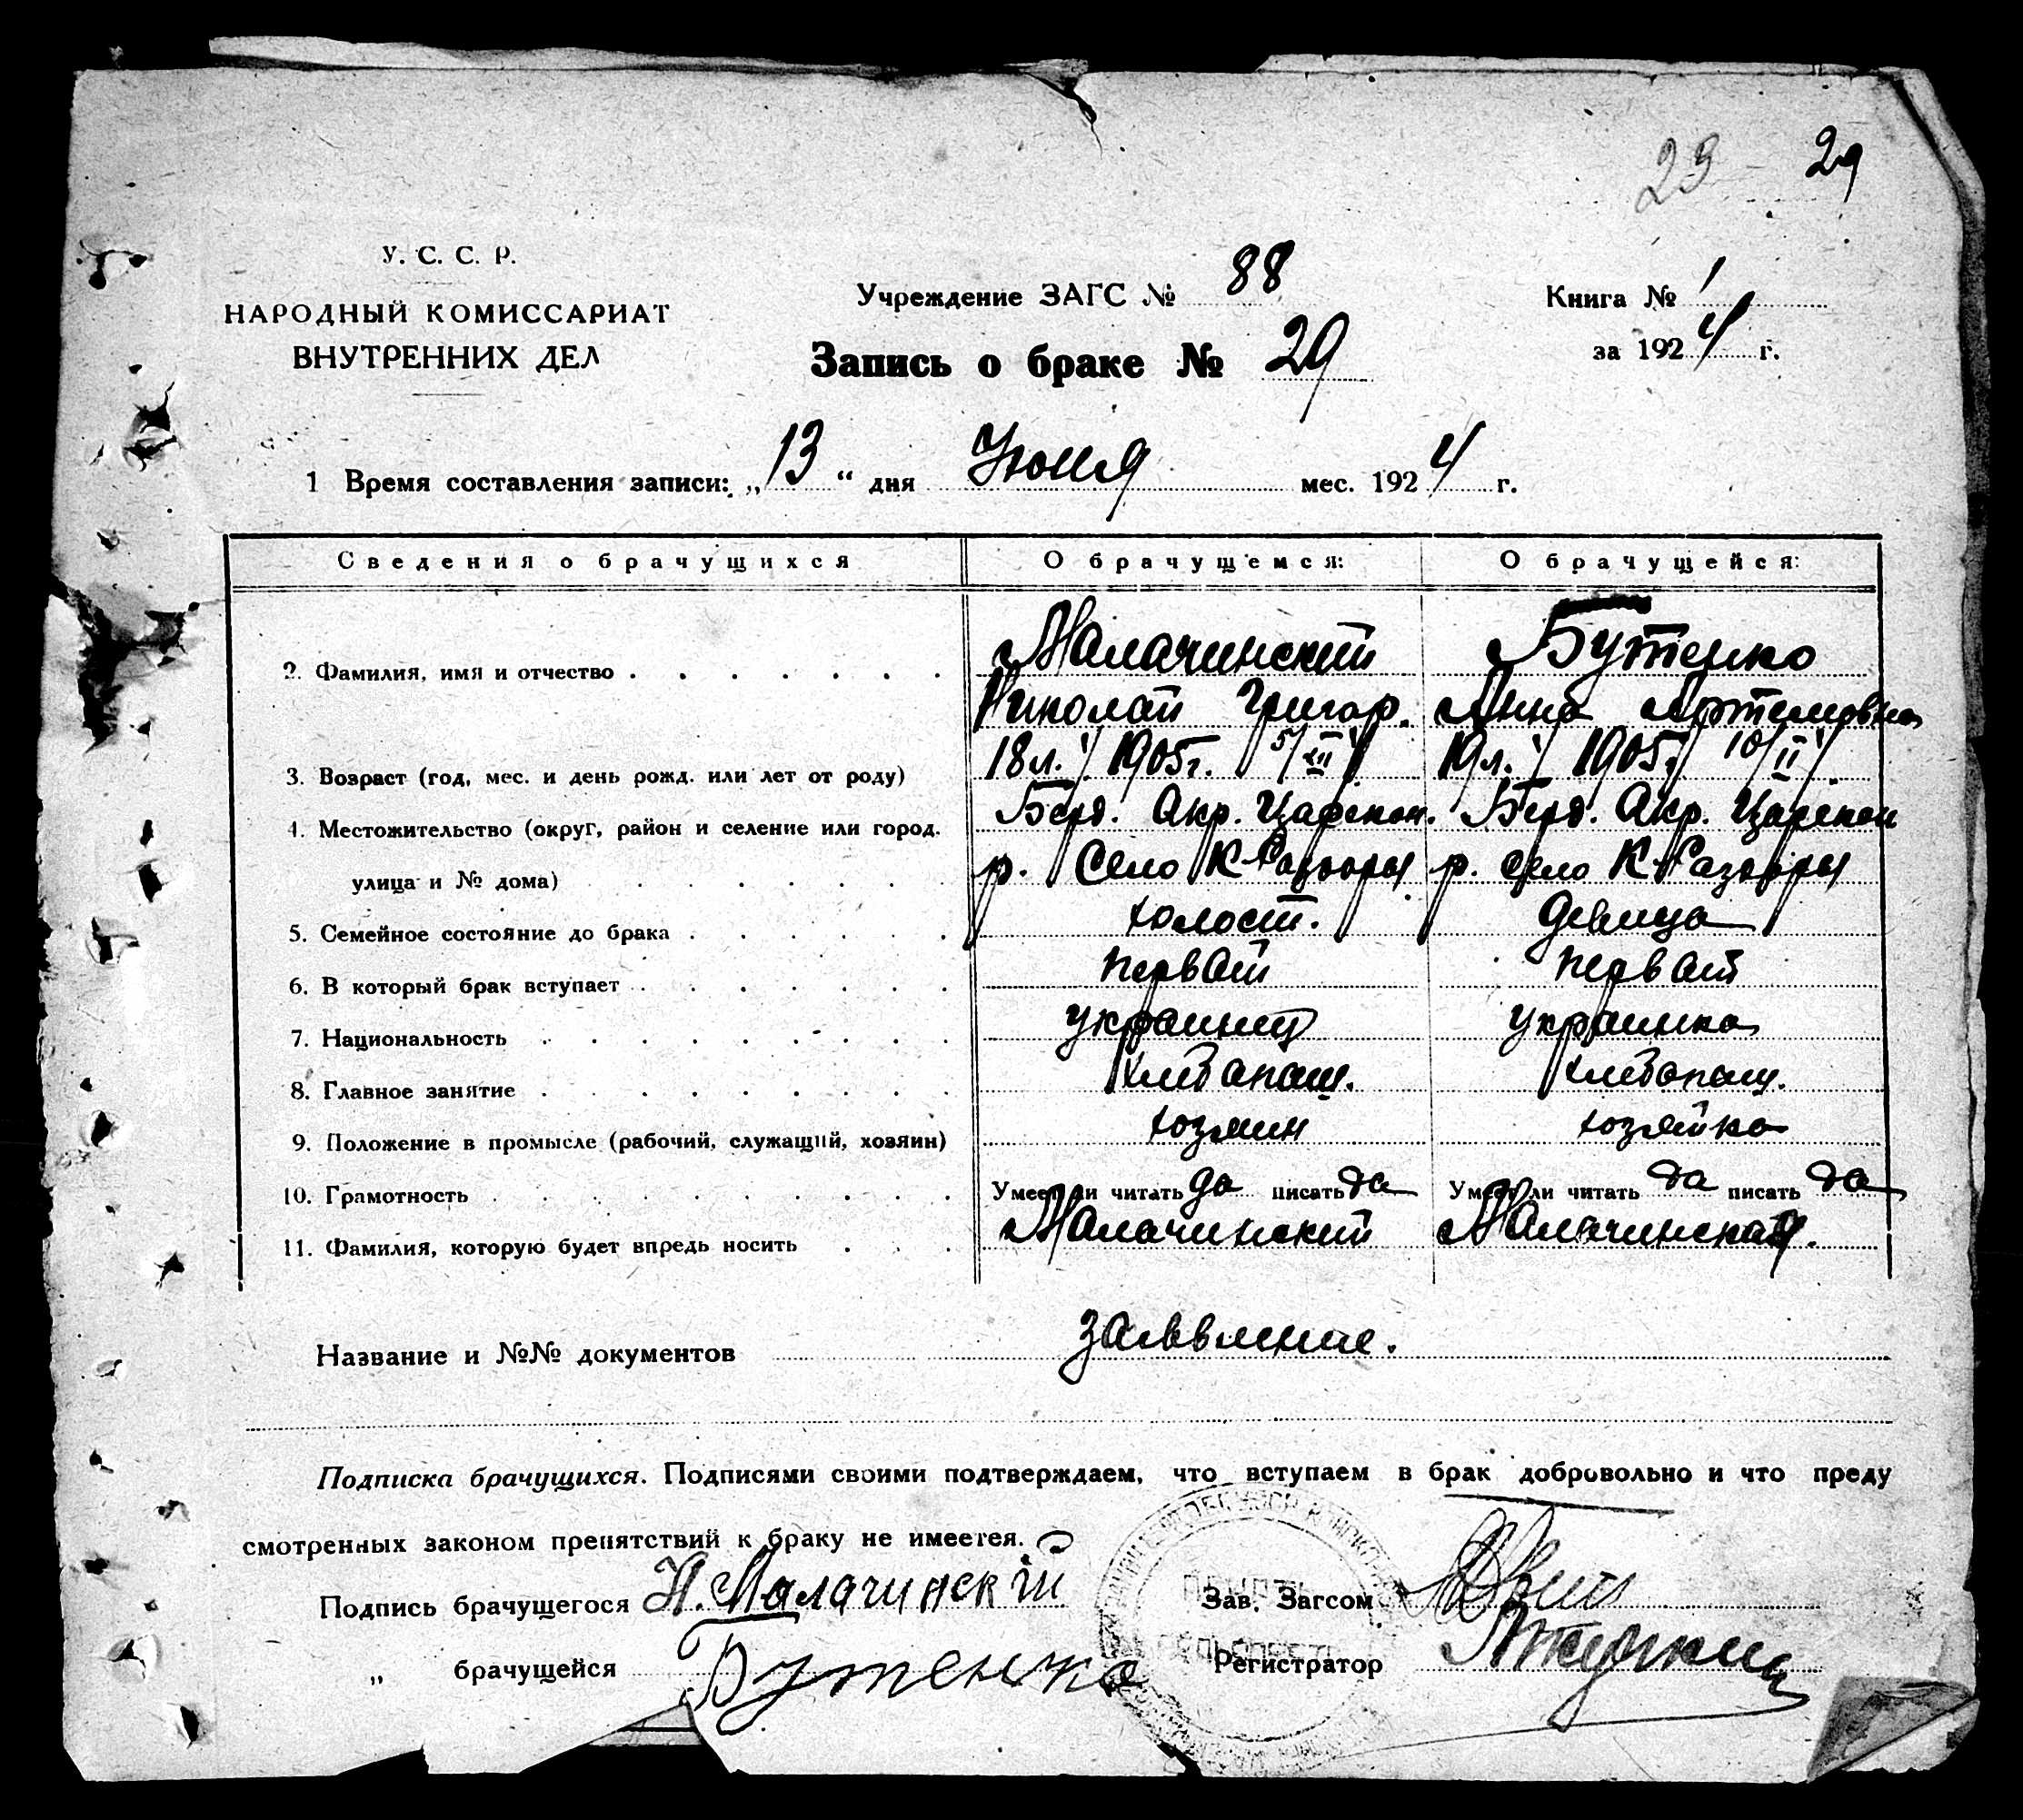 23 29
У. С. С. Р.
НАРОДНЫЙ КОМИССАРИАТ
ВНУТРЕННИХ ДЕЛ
Учреждение ЗАГС № 88
Книга № 1
за 1924 г.
Запись о браке № 29
1 Время составления записи: „13“ дня Июня мес. 1924 г.
Сведения о брачущихся О брачущемся: О брачущейся:
2. Фамилия, имя и отчество Малачинский Бутенко
Николай Григор. Анна Артемовна
3. Возраст (год, мес. и день рожд. или лет от роду) 18л. 1905г. 5/XII 19л. 1905г. 10/II
4. Местожительство (округ, район и селение или город, Берд. Окр. Царекон. Берд. Окр. Царекон
улица и № дома) р. Село К-Раздоры р. село К-Раздоры
5. Семейное состояние до брака холост. девица
6. В который брак вступает первый первый
7. Национальность украинец украинка
8. Главное занятие хлебопаш. хлебопаш.
9. Положение в промысле (рабочий, служащий, хозяин) хозяин хозяйка
10. Грамотность Умеет ли читать да писать да Умеет ли читать да писать да
11. Фамилия, которую будет впредь носить Малачинский Малачинская.
Название и №№ документов заявление.
Подписка брачущихся. Подписями своими подтверждаем, что вступаем в брак добровольно и что преду
смотренных законом препятствий к браку не имеется.
Подпись брачущегося Н. Малачинскій Зав. Загсом
„ брачущейся Бутенко Регистратор